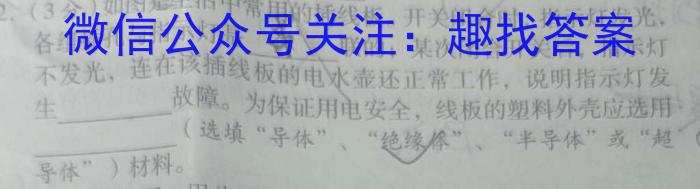 2. (3分)如图是生活中常用的插线板,开关闭合时,指示灯发光,
微信公众号关注:趣找答案
不发光,连在该插线板的电水壶还正常工作,说明指示灯发
生________故障。为保证用电安全,线板的塑料外壳应选用
________(选填“导体”、“绝缘体”、“半导体”或“超
导体”)材料。